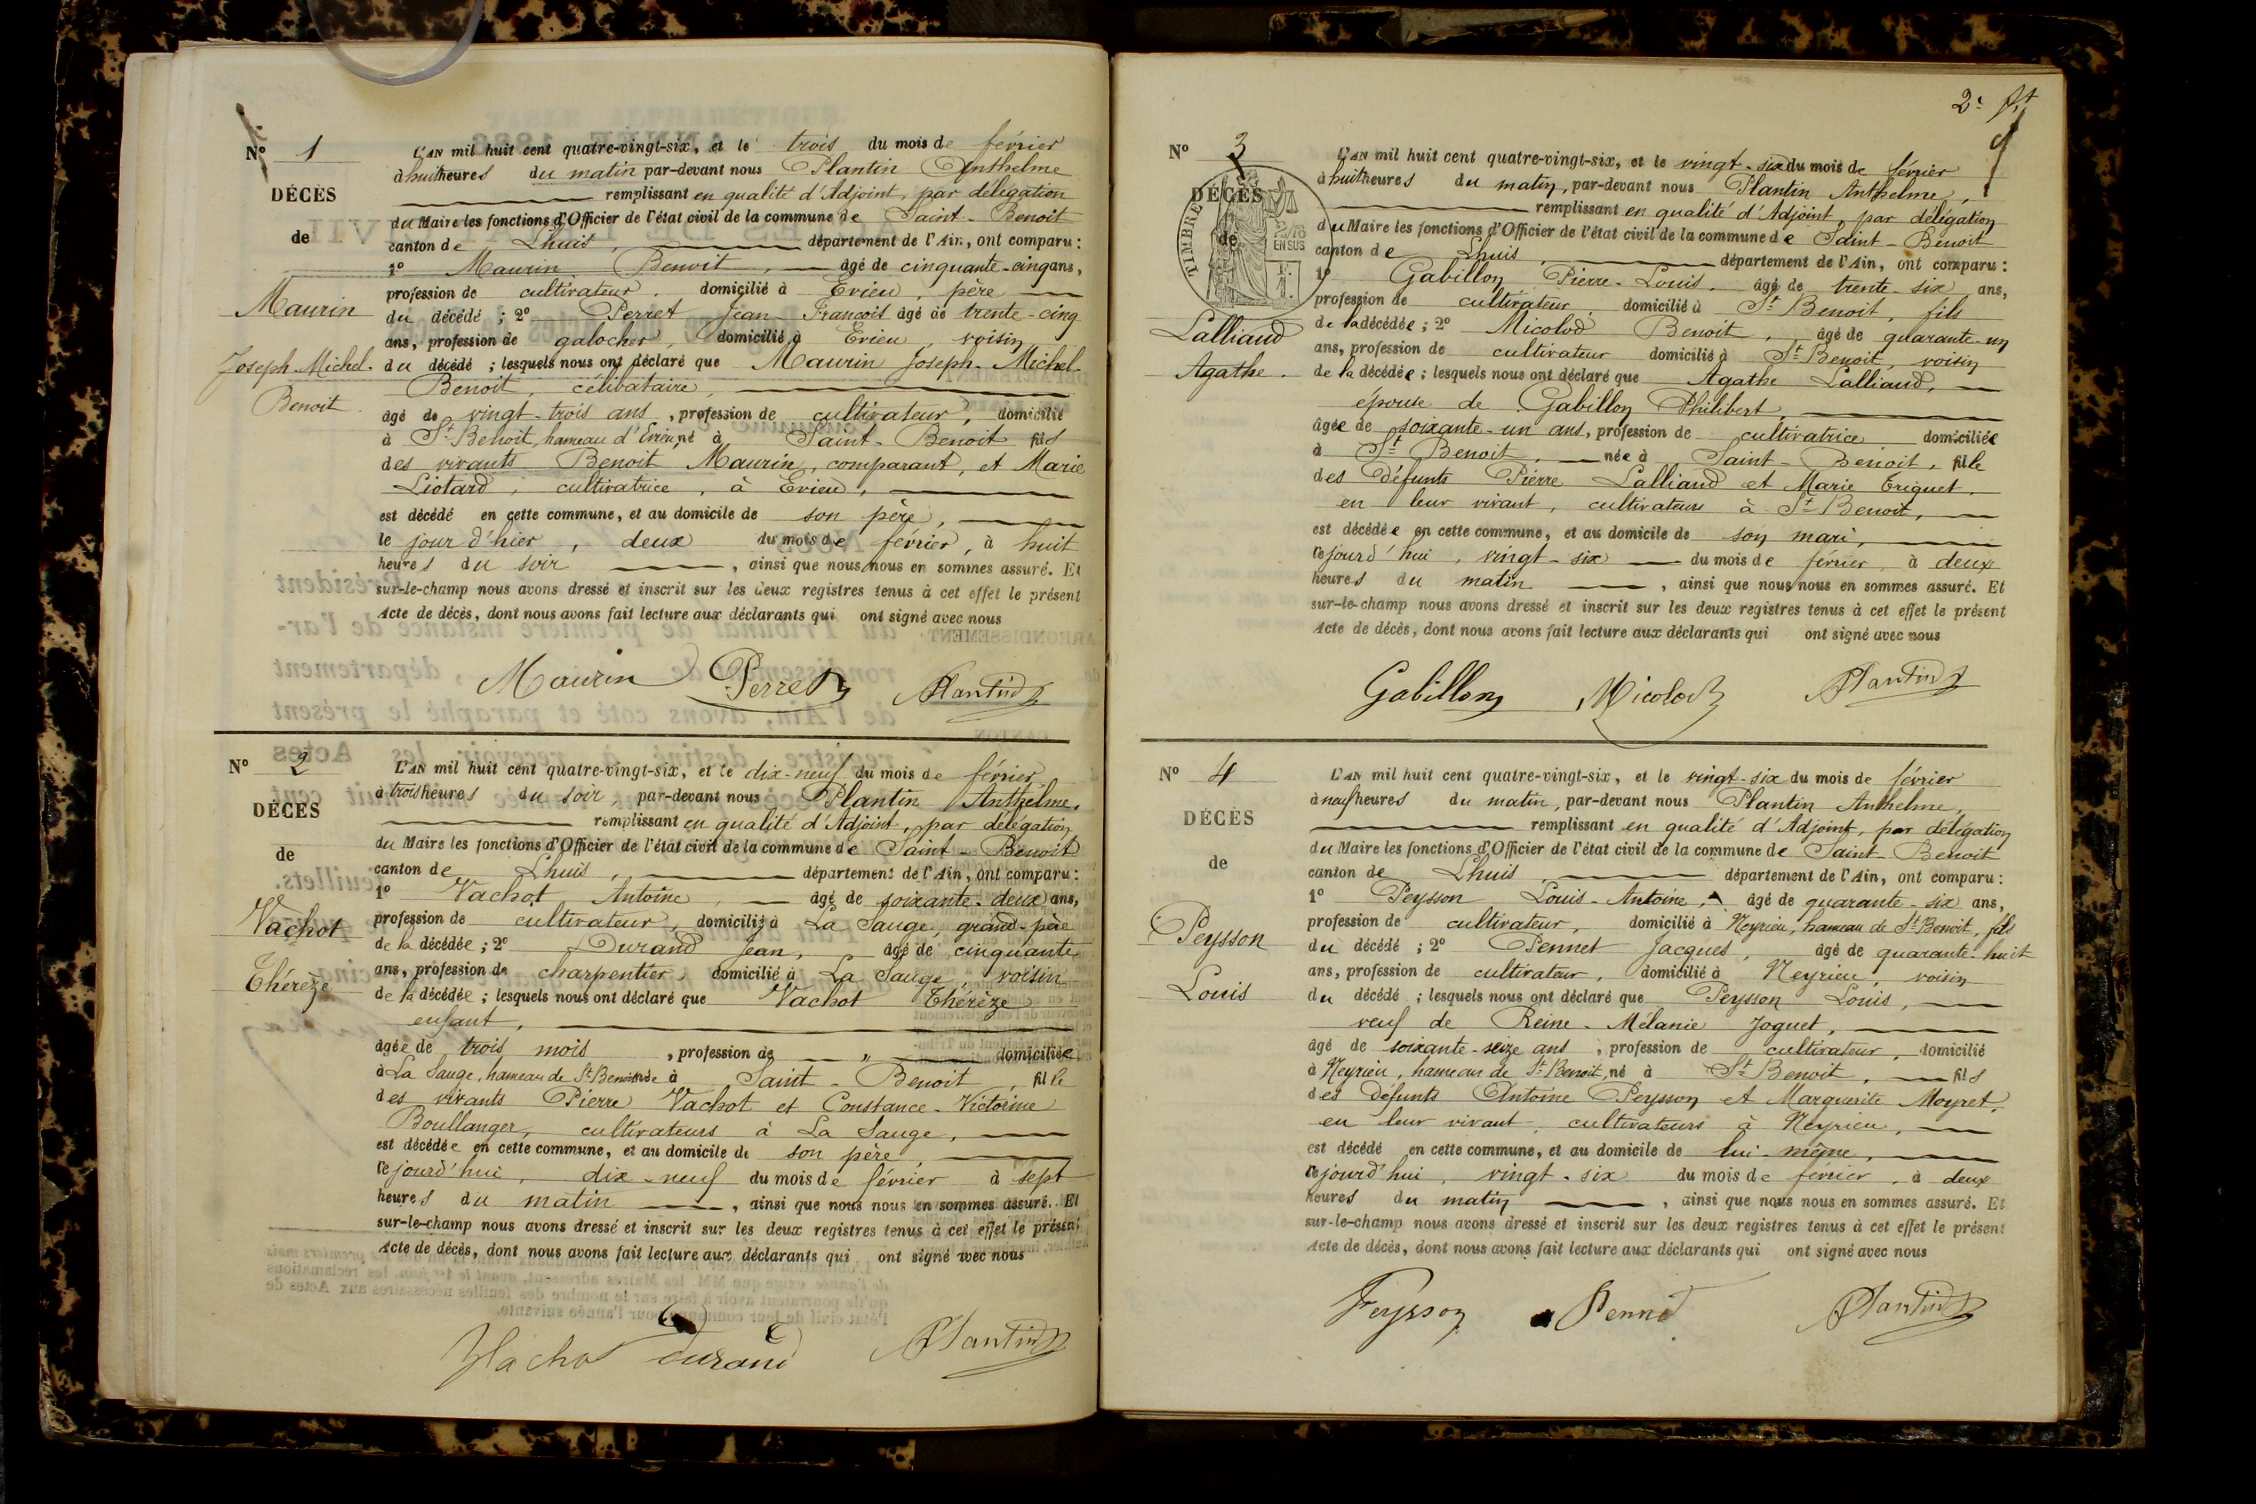 N° 1
DÉCÈS
de
Maurin
Joseph-Michel-
Benoit
L'AN mil huit cent quatre-vingt-six, et le trois du mois de février
à huit heures du matin par-devant nous Plantin Anthelme
remplissant en qualité d'Adjoint, par délégation
du Maire les fonctions d'Officier de l'état civil de la commune de Saint-Benoit
canton de Lhuis, département de l'Ain, ont comparu :
1° Maurin Benoit, âgé de cinquante-cinq ans,
profession de cultivateur, domicilié à Evieu, père
du décédé ; 2° Perret Jean-François âgé de trente-cinq
ans, profession de galocher, domicilié à Evieu, voisin
du décédé ; lesquels nous ont déclaré que Maurin Joseph-Michel-
Benoit, célibataire,
âgé de vingt-trois ans, profession de cultivateur, domicilié
à St Benoit, hameau d'Evieu, né à Saint-Benoit fils
des vivants Benoit Maurin, comparant, et Marie
Liotard, cultivatrice, à Evieu,
est décédé en cette commune, et au domicile de son père,
le jour d'hier, deux du mois de février, à huit
heures du soir, ainsi que nous nous en sommes assuré. Et
sur-le-champ nous avons dressé et inscrit sur les deux registres tenus à cet effet le présent
Acte de décès, dont nous avons fait lecture aux déclarants qui ont signé avec nous
Maurin Perret Plantin
N° 2
DÉCÈS
de
Vachot
Thérèze
L'AN mil huit cent quatre-vingt-six, et le dix-neuf du mois de février
à trois heures du soir, par-devant nous Plantin Anthelme,
remplissant en qualité d'Adjoint, par délégation
du Maire les fonctions d'Officier de l'état civil de la commune de Saint-Benoit
canton de Lhuis, département de l'Ain, ont comparu :
1° Vachot Antoine, âgé de soixante-deux ans,
profession de cultivateur, domicilié à La Sauge, grand-père
de la décédée ; 2° Durand Jean, âgé de cinquante
ans, profession de charpentier, domicilié à La Sauge, voisin
de la décédée ; lesquels nous ont déclaré que Vachot Thérèze
enfant,
âgée de trois mois, profession de „ domiciliée
à La Sauge, hameau de St Benoit née à Saint-Benoit, fille
des vivants Pierre Vachot et Constance-Victorine
Boullanger, cultivateurs à La Sauge,
est décédée en cette commune, et au domicile de son père
cejourd'hui, dix-neuf du mois de février à sept
heures du matin, ainsi que nous nous en sommes assuré. Et
sur-le-champ nous avons dressé et inscrit sur les deux registres tenus à cet effet le présent
Acte de décès, dont nous avons fait lecture aux déclarants qui ont signé avec nous
Vachot Durand Plantin
2e ft
N° 3
DÉCÈS
de
TIMBRE
2/10 EN SUS
Lalliaud
Agathe.
L'AN mil huit cent quatre-vingt-six, et le vingt-six du mois de février
à huit heures du matin, par-devant nous Plantin Anthelme,
remplissant en qualité d'Adjoint, par délégation
du Maire les fonctions d'Officier de l'état civil de la commune de Saint-Benoit
canton de Lhuis, département de l'Ain, ont comparu :
1° Gabillon Pierre-Louis, âgé de trente-six ans,
profession de cultivateur, domicilié à St Benoit, fils
de la décédée ; 2° Micolod Benoit, âgé de quarante-un
ans, profession de cultivateur domicilié à St Benoit, voisin
de la décédée ; lesquels nous ont déclaré que Agathe Lalliaud,
épouse de Gabillon Philibert,
âgée de soixante-un ans, profession de cultivatrice domiciliée
à St Benoit, née à Saint-Benoit, fille
des défunts Pierre Lalliaud et Marie Triquet,
en leur vivant, cultivateurs à St Benoit,
est décédée en cette commune, et au domicile de son mari,
cejourd'hui, vingt-six du mois de février, à deux
heures du matin, ainsi que nous nous en sommes assuré. Et
sur-le-champ nous avons dressé et inscrit sur les deux registres tenus à cet effet le présent
Acte de décès, dont nous avons fait lecture aux déclarants qui ont signé avec nous
Gabillon Micolod Plantin
N° 4
DÉCÈS
de
Peysson
Louis
L'AN mil huit cent quatre-vingt-six, et le vingt-six du mois de février
à neuf heures du matin, par-devant nous Plantin Anthelme,
remplissant en qualité d'Adjoint, par délégation
du Maire les fonctions d'Officier de l'état civil de la commune de Saint-Benoit
canton de Lhuis, département de l'Ain, ont comparu :
1° Peysson Louis-Antoine, âgé de quarante-six ans,
profession de cultivateur, domicilié à Neyrieu, hameau de St Benoit, fils
du décédé ; 2° Pennet Jacques, âgé de quarante-huit
ans, profession de cultivateur, domicilié à Neyrieu, voisin
du décédé ; lesquels nous ont déclaré que Peysson Louis,
veuf de Reine-Mélanie Joguet,
âgé de soixante-seize ans, profession de cultivateur, domicilié
à Neyrieu, hameau de St Benoit, né à St Benoit, fils
des défunts Antoine Peysson et Marguerite Moyret,
en leur vivant, cultivateurs à Neyrieu,
est décédé en cette commune, et au domicile de lui-même,
cejourd'hui, vingt-six du mois de février, à deux
heures du matin, ainsi que nous nous en sommes assuré. Et
sur-le-champ nous avons dressé et inscrit sur les deux registres tenus à cet effet le présent
Acte de décès, dont nous avons fait lecture aux déclarants qui ont signé avec nous
Peysson Pennet Plantin